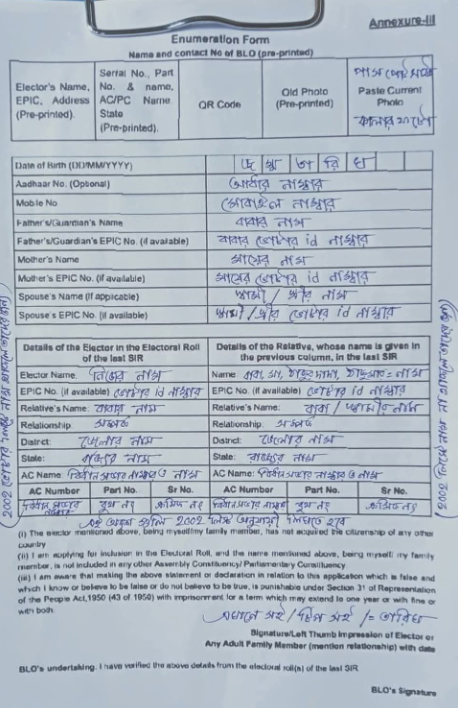 Annexure-III
Enumeration Form
Name and contact No of BLO (pre-printed)
Elector's Name, EPIC, Address (Pre-printed).
Serial No., Part No. & name, AC/PC Name State (Pre-printed).
QR Code
Old Photo (Pre-printed)
পাসপোর্ট সাইজ
Paste Current Photo
কালার ফটো
Date of Birth (DD/MM/YYYY) জন্ম তারিখ
Aadhaar No. (Optional) আধার নাম্বার
Mobile No মোবাইল নাম্বার
Father's/Guardian's Name বাবার নাম
Father's/Guardian's EPIC No. (if available) বাবার ভোটার id নাম্বার
Mother's Name মায়ের নাম
Mother's EPIC No. (if available) মায়ের ভোটার id নাম্বার
Spouse's Name (if applicable) স্বামী / স্ত্রীর নাম
Spouse's EPIC No. (if available) স্বামী / স্ত্রীর ভোটার id নাম্বার
Details of the Elector in the Electoral Roll of the last SIR
Elector Name: নিজের নাম
EPIC No. (if available) ভোটার id নাম্বার
Relative's Name: বাবার নাম
Relationship: সম্পর্ক
District: জেলার নাম
State: রাজ্যের নাম
AC Name নির্বাচন সভার নাম্বার ও নাম
AC Number Part No. Sr No.
নির্বাচন সভার নাম্বার বুথ নং ক্রমিক নং
Details of the Relative, whose name is given in the previous column, in the last SIR
Name: বাবা, মা, ঠাকুরদাদা, ঠাকুমার নাম
EPIC No. (if available) ভোটার id নাম্বার
Relative's Name: বাবা / স্বামীর নাম
Relationship: সম্পর্ক
District: জেলার নাম
State: রাজ্যের নাম
AC Name: নির্বাচন সভার নাম্বার ও নাম
AC Number Part No. Sr No.
নির্বাচন সভার নাম্বার বুথ নং ক্রমিক নং
2002 লিস্ট অনুযায়ী হবে
(i) The elector mentioned above, being myself/my family member, has not acquired the citizenship of any other country
(ii) I am applying for inclusion in the Electoral Roll, and the name mentioned above, being myself/ my family member, is not included in any other Assembly Constituency/ Parliamentary Constituency
(iii) I am aware that making the above statement or declaration in relation to this application which is false and which I know or believe to be false or do not believe to be true, is punishable under Section 31 of Representation of the People Act,1950 (43 of 1950) with imprisonment for a term which may extend to one year or with fine or with both.
এখানে সই / টিপ সই / = তারিখ
Signature/Left Thumb Impression of Elector or
Any Adult Family Member (mention relationship) with date
BLO's undertaking. I have verified the above details from the electoral roll(s) of the last SIR
BLO's Signature